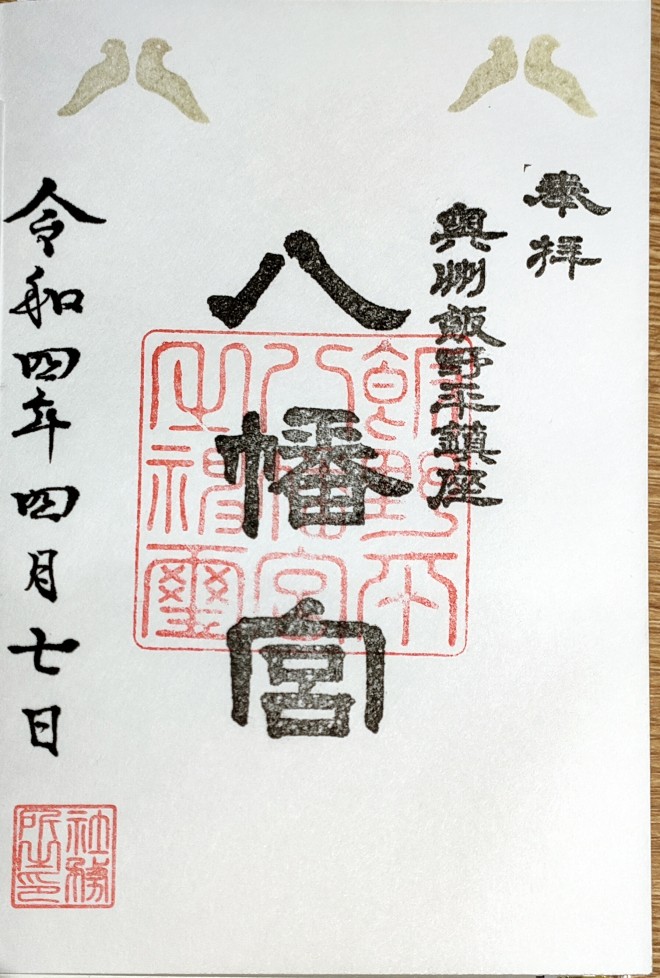 奉拝
奥州飯野平鎮座
八幡宮
飯野平
八幡宮
之神璽
令和四年四月七日
社務
所之印